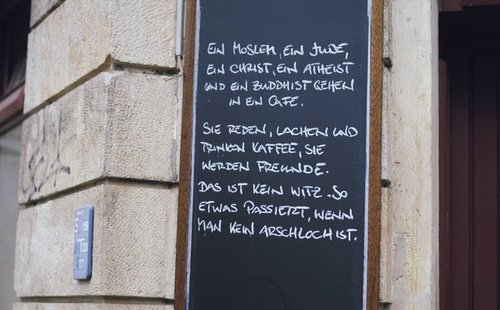 EIN MOSLEM, EIN JUDE,
EIN CHRIST, EIN ATHEIST
UND EIN BUDDHIST GEHEN
IN EIN CAFE.
SIE REDEN, LACHEN UND
TRINKEN KAFFEE, SIE
WERDEN FREUNDE.
DAS IST KEIN WITZ. SO
ETWAS PASSIERT, WENN
MAN KEIN ARSCHLOCH IST.